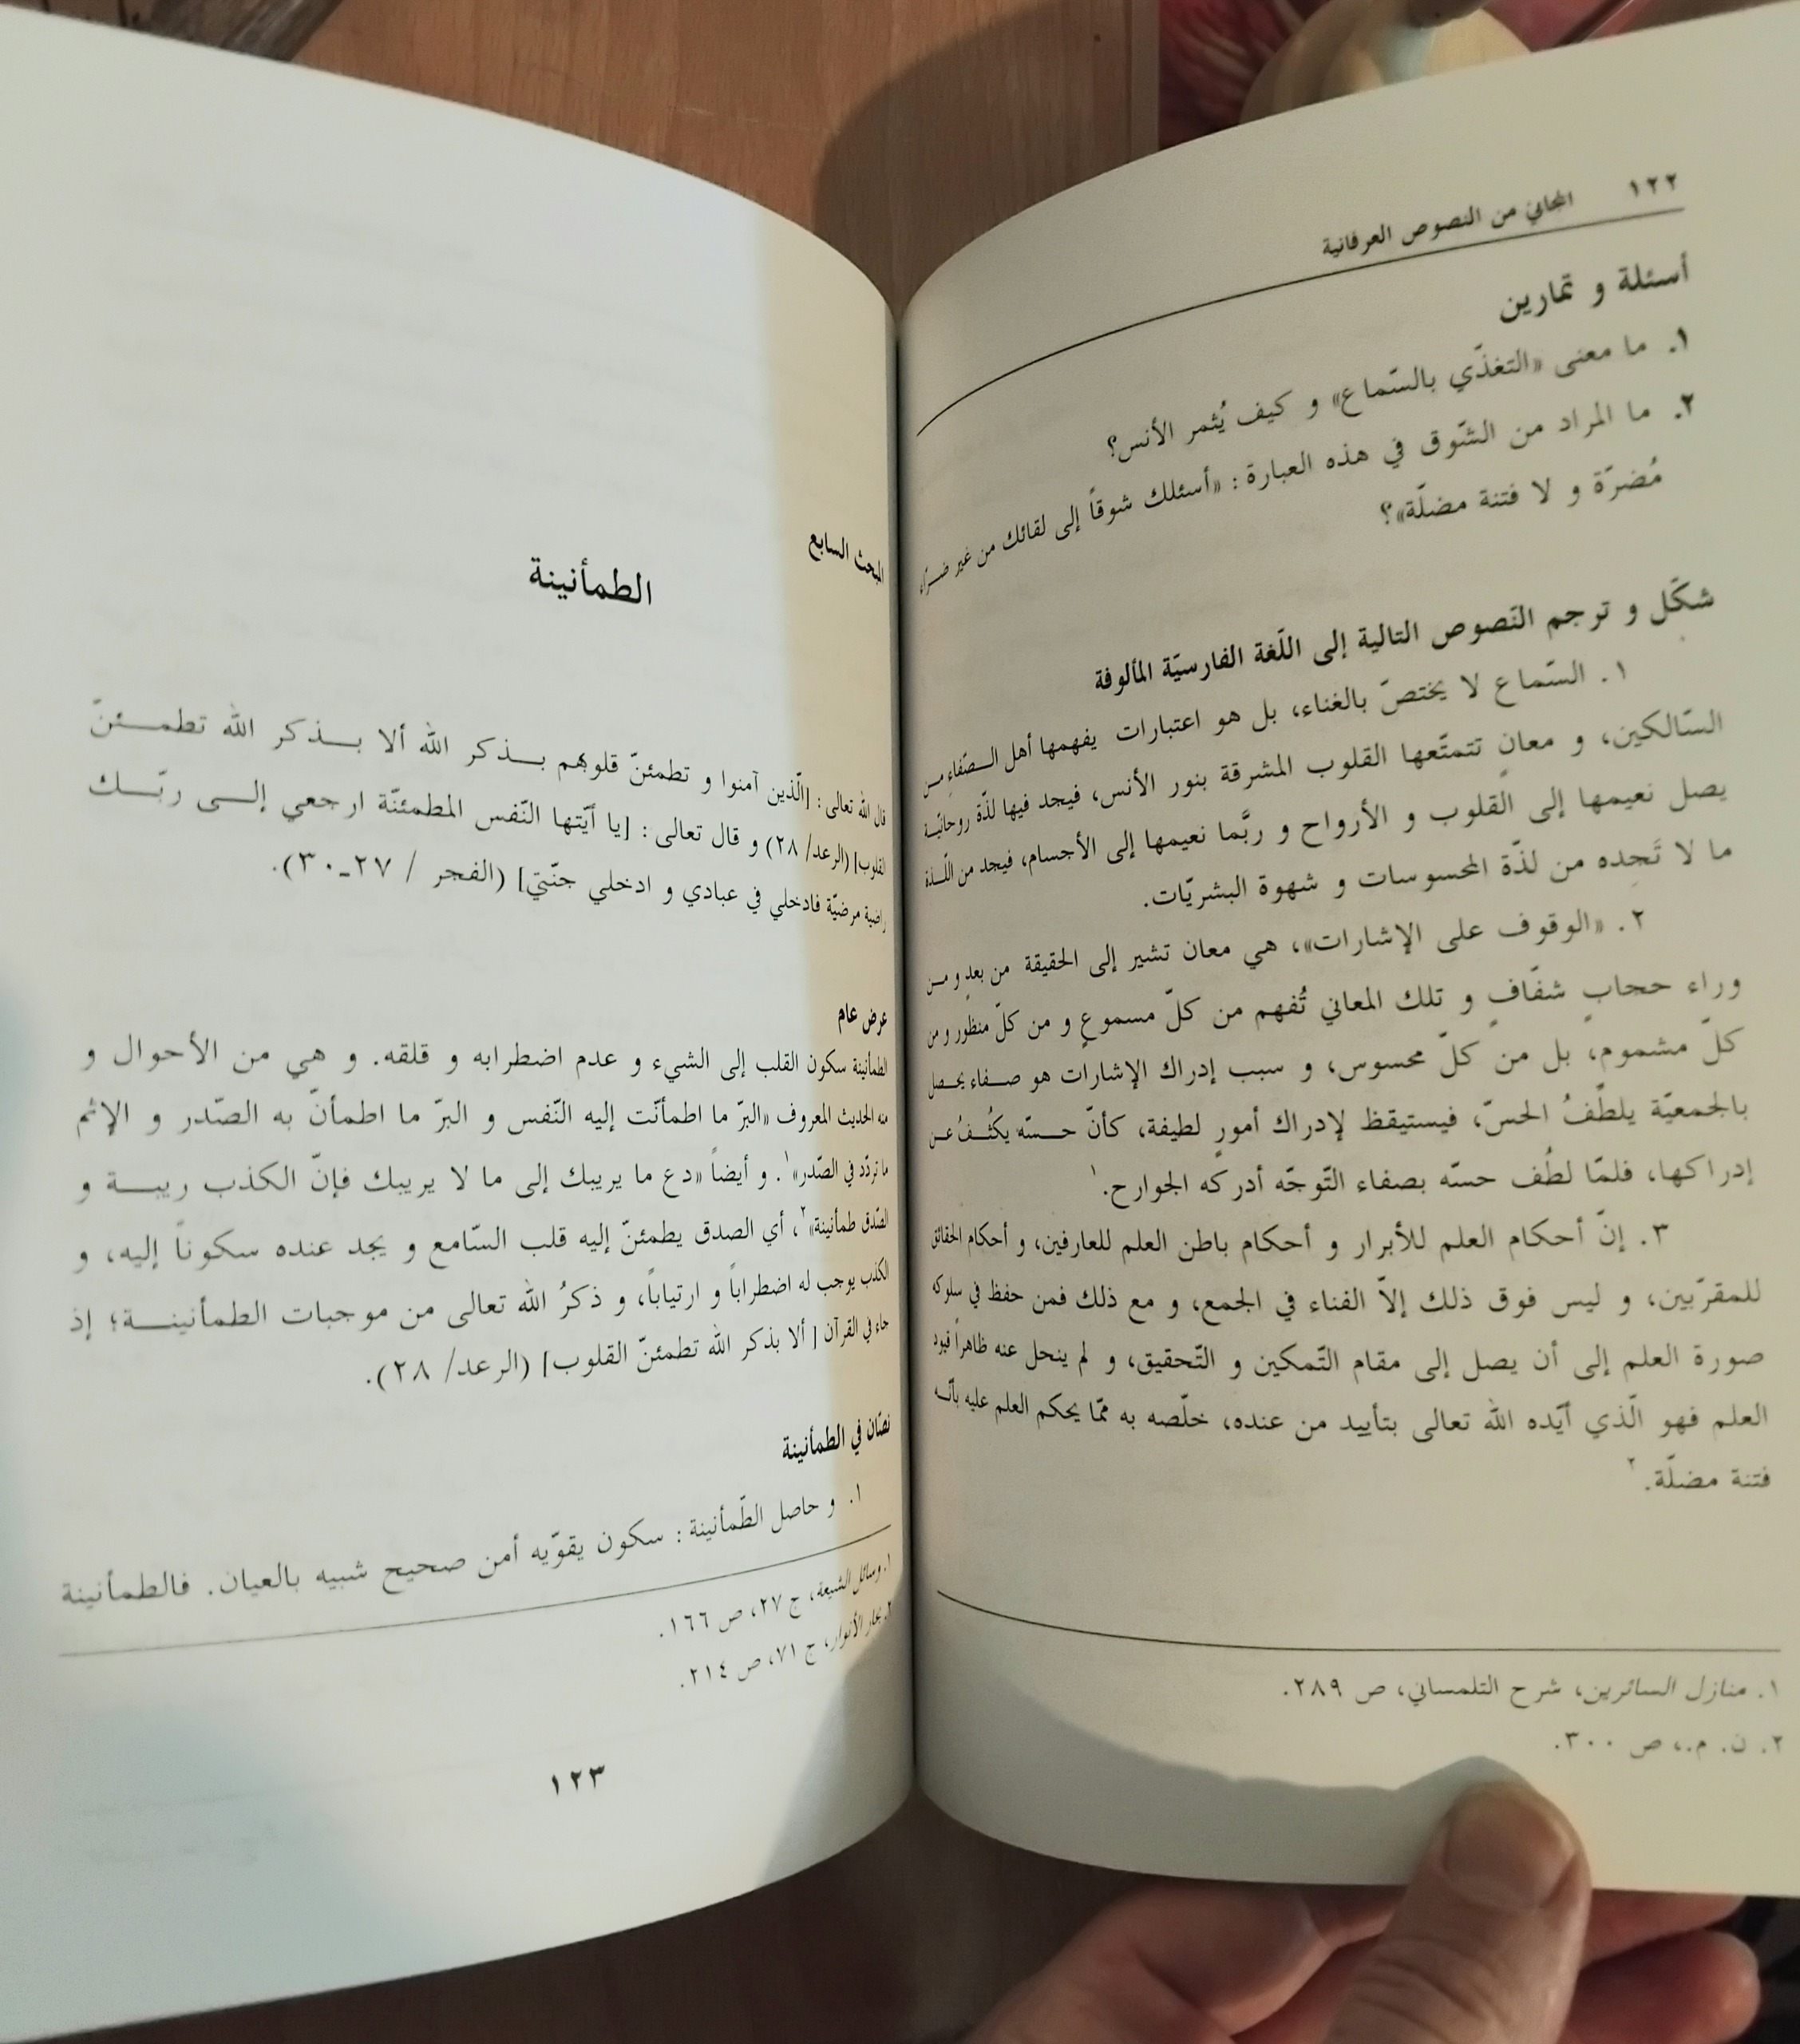 ١٢٢ المجاني من النصوص العرفانية
أسئلة و تمارين
١. ما معنى «التغذّي بالسّماع» و كيف يُثمر الأنس؟
٢. ما المراد من الشّوق في هذه العبارة: «أسئلك شوقاً إلى لقائك من غير ضرّاء
مُضرّة و لا فتنة مضلّة»؟
شكّل و ترجم النّصوص التالية إلى اللّغة الفارسيّة المألوفة
١. السّماع لا يختصّ بالغناء، بل هو اعتبارات يفهمها أهل الـصّفاءِ مـن
السّالكين، و معانٍ تتمتّعها القلوب المشرقة بنور الأنس، فيجد فيها لذّة روحانيّـة
يصل نعيمها إلى القلوب و الأرواح و ربَّما نعيمها إلى الأجسام، فيجد من اللّـذة
ما لا تَجِده من لذّة المحسوسات و شهوة البشريّات.
٢. «الوقوف على الإشارات»، هي معان تشير إلى الحقيقة من بعدٍ و مـن
وراء حجابٍ شفّافٍ و تلك المعاني تُفهم من كلّ مسموعٍ و من كلّ منظور و من
كلّ مشموم، بل من كلّ محسوس، و سبب إدراك الإشارات هو صـفاء يحـصل
بالجمعيّة يلطّفُ الحسّ، فيستيقظ لإدراك أمورٍ لطيفة، كأنّ حـسّه يكثُـفُ عـن
إدراكها، فلمّا لطُف حسّه بصفاء التّوجّه أدركه الجوارح.١
٣. إنّ أحكام العلم للأبرار و أحكام باطن العلم للعارفين، و أحكام الحقائق
للمقرّبين، و ليس فوق ذلك إلاّ الفناء في الجمع، و مع ذلك فمن حفظ في سلوكه
صورة العلم إلى أن يصل إلى مقام التّمكين و التّحقيق، و لم ينحل عنه ظاهراً قيود
العلم فهو الّذي أيّده الله تعالى بتأييد من عنده، خلّصه به ممّا يحكم العلم عليه بأنّـه
فتنة مضلّة.٢
١. منازل السائرين، شرح التلمساني، ص ٢٨٩.
٢. ن. م.، ص ٣٠٠.
المبحث السابع
الطمأنينة
قال الله تعالى: [الّذين آمنوا و تطمئنّ قلوبهم بـذكر الله ألا بـذكر الله تطمـئنّ
القلوب] (الرعد/ ٢٨) و قال تعالى: [يا أيّتها النّفس المطمئنّة ارجعي إلـى ربّـك
راضية مرضيّة فادخلي في عبادي و ادخلي جنّتي] (الفجر / ٢٧ـ٣٠).
عرض عام
الطمأنينة سكون القلب إلى الشيء و عدم اضطرابه و قلقه. و هي من الأحوال و
منه الحديث المعروف «البرّ ما اطمأنّت إليه النّفس و البرّ ما اطمأنّ به الصّدر و الإثم
ما تردّد في الصّدر»١. و أيضاً «دع ما يريبك إلى ما لا يريبك فإنّ الكذب ريبـة و
الصّدق طمأنينة»٢، أي الصدق يطمئنّ إليه قلب السّامع و يجد عنده سكوناً إليه، و
الكذب يوجب له اضطراباً و ارتياباً، و ذكرُ الله تعالى من موجبات الطمأنينـة؛ إذ
جاء في القرآن [ألا بذكر الله تطمئنّ القلوب] (الرعد/ ٢٨).
نصّان في الطمأنينة
١. و حاصل الطّمأنينة: سكون يقوّيه أمن صحيح شبيه بالعيان. فالطمأنينة
١. وسائل الشيعة، ج ٢٧، ص ١٦٦.
٢. بحار الأنوار، ج ٧١، ص ٢١٤.
١٢٣